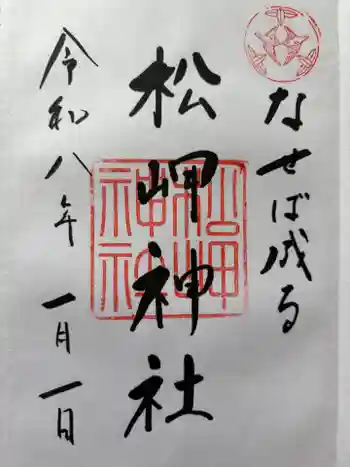 なせば成る
松岬神社
令和八年 一月一日
松岬神社